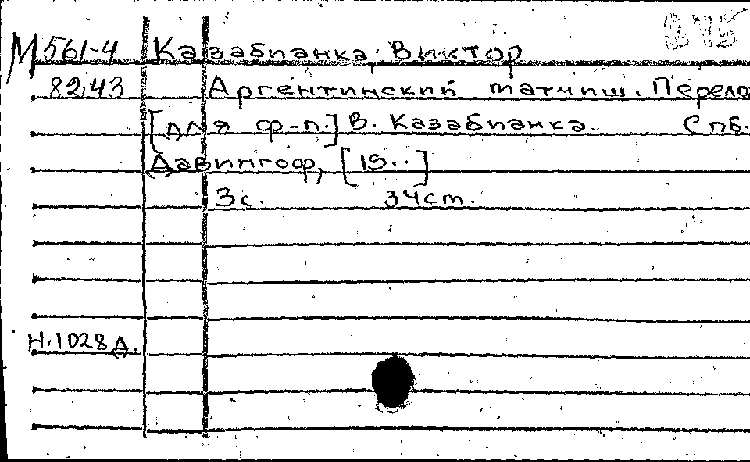 М 561-4 Казабианка, Виктор
8243 Аргентинский татчиш. Перело
[для ф-п.] В. Казабианка. Спб.
Давингоф, [19..]
3с. 34ст.
Н.1028д.